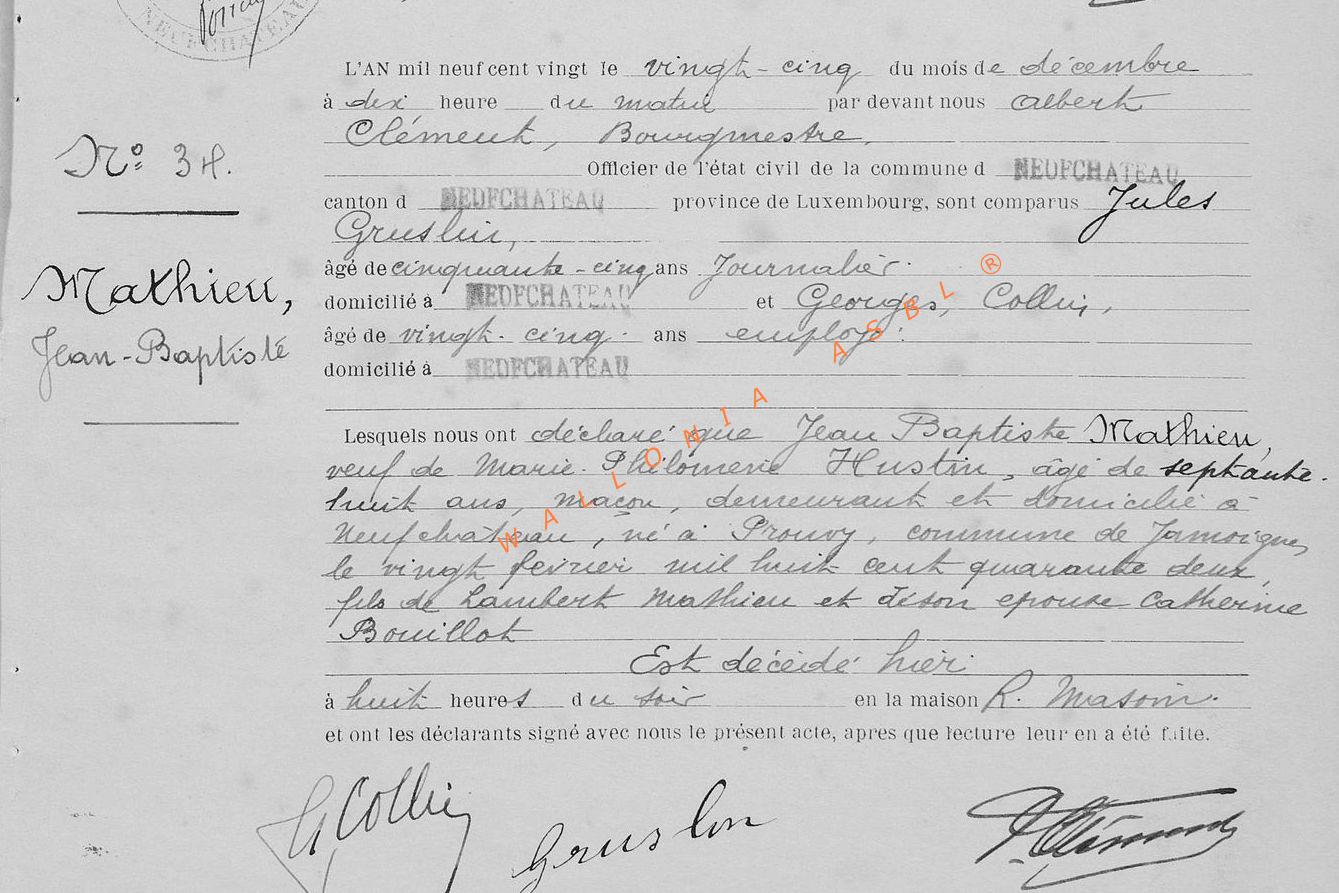 NEUFCHATEAU
L'AN mil neuf cent vingt le vingt-cinq du mois de décembre
à dix heure du matin par devant nous Albert
Clément, Bourgmestre,
Officier de l'état civil de la commune d NEUFCHATEAU
canton d NEUFCHATEAU province de Luxembourg, sont comparus Jules
Gruslin,
âgé de cinquante-cinq ans Journalier.
domicilié à NEUFCHATEAU et Georges, Collin,
âgé de vingt-cinq ans employé.
domicilié à NEUFCHATEAU
Lesquels nous ont déclaré que Jean Baptiste Mathieu,
veuf de Marie-Philomène Hustin, âgé de septante-
huit ans, maçon, demeurant et domicilié à
Neufchâteau, né à Prouvy, commune de Jamoigne,
le vingt février mil huit cent quarante deux,
fils de Lambert Mathieu et de son epouse Catherine
Bouillot
Est décédé hier
à huit heures du soir en la maison R. Masoin.
et ont les déclarants signé avec nous le présent acte, apres que lecture leur en a été faite.
G Collin Gruslin Clément
Nº 34.
Mathieu,
Jean-Baptiste
WALLONIA ASBL ®